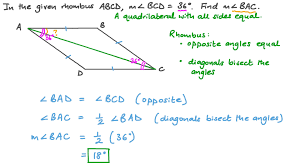 In the given rhombus ABCD, m∠BCD = 36°. Find m∠BAC.
A quadrilateral with all sides equal
A
B
36°
?
36°
D
C
Rhombus:
• opposite angles equal
• diagonals bisect the
angles
∠BAD = ∠BCD (opposite)
∠BAC = 1/2 ∠BAD (diagonals bisect the angles)
m∠BAC = 1/2 (36°)
= 18°